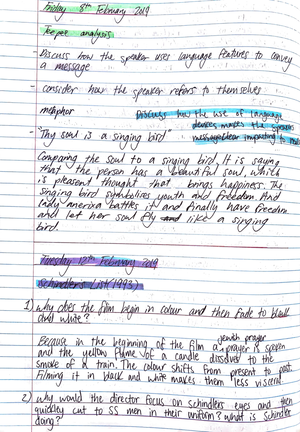 Friday 8th February 2019
analysis
- Discuss how the speaker uses language features to convey
a message
- consider how the speaker refers to themselves
metaphor
Discuss how the use of language
devices makes the speakers
- "My soul is a singing bird"
message clear impacting &
Comparing the soul to a singing bird. It is saying
that the person has a beautiful soul, which
is pleasent thought that brings happiness. The
singing bird symbolizes youth and freedom. And
lady battles it and finally have freedom
and let her soul fly like a singing
bird.
Tuesday 12th February 2019
Schindler's List (1993)
1) why does the film begin in colour and then fade to black
and white?
jewish prayer
Because in the beginning of the film a prayer is spoken
and the yellow flame of a candle dissolves to the
smoke of a train. The colour shifts from present to past.
Filming it in black and white makes them less visceral.
2) why would the director focus on schindlers eyes and then
quickley cut to SS men in their uniform? what is Schindler
doing?